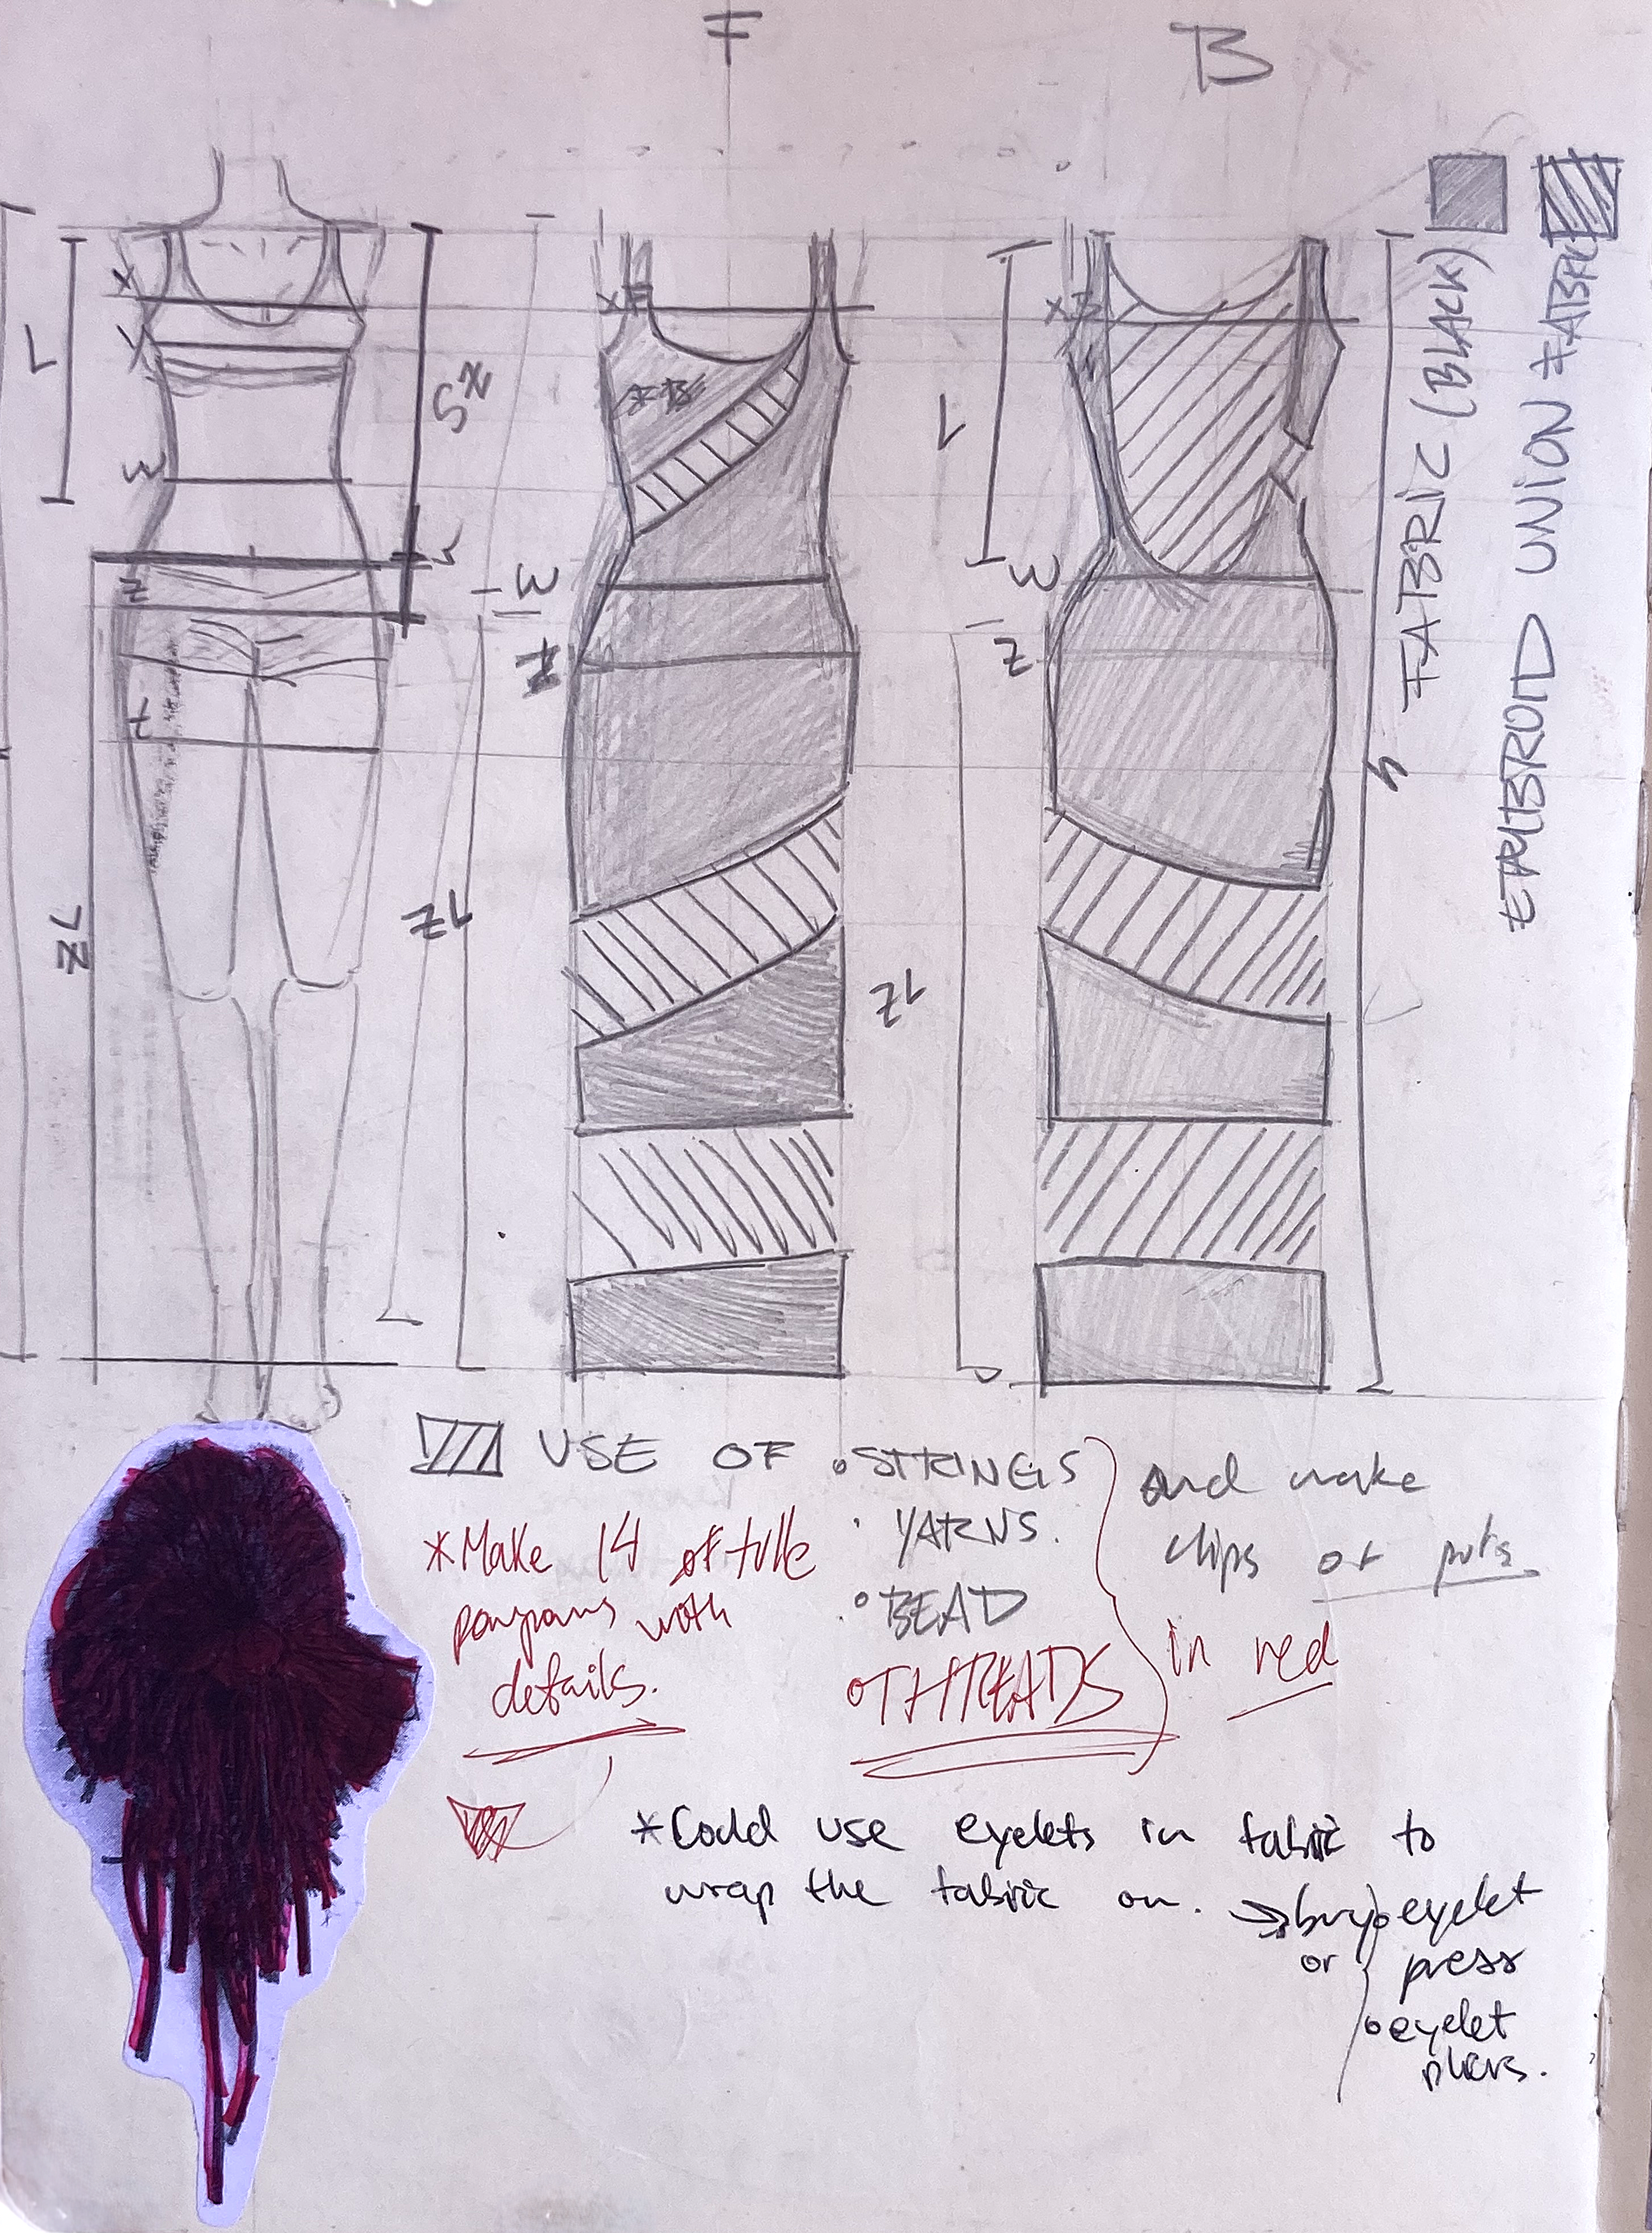 F
B
X
Y
L
W
Z
t
ZL
ZL
XF
W
Z
ZL
XB
L
W
Z
FABRIC (BLACK)
EMBROID UNION FABRIC
USE OF • STRINGS
• YARNS.
• BEAD
• THREADS
and make
clips or puts
in red
*Make 14 of tulle
pompoms with
details.
*Could use eyelets in fabric to
wrap the fabric on. → buy • eyelet
or press
• eyelet
pliers.